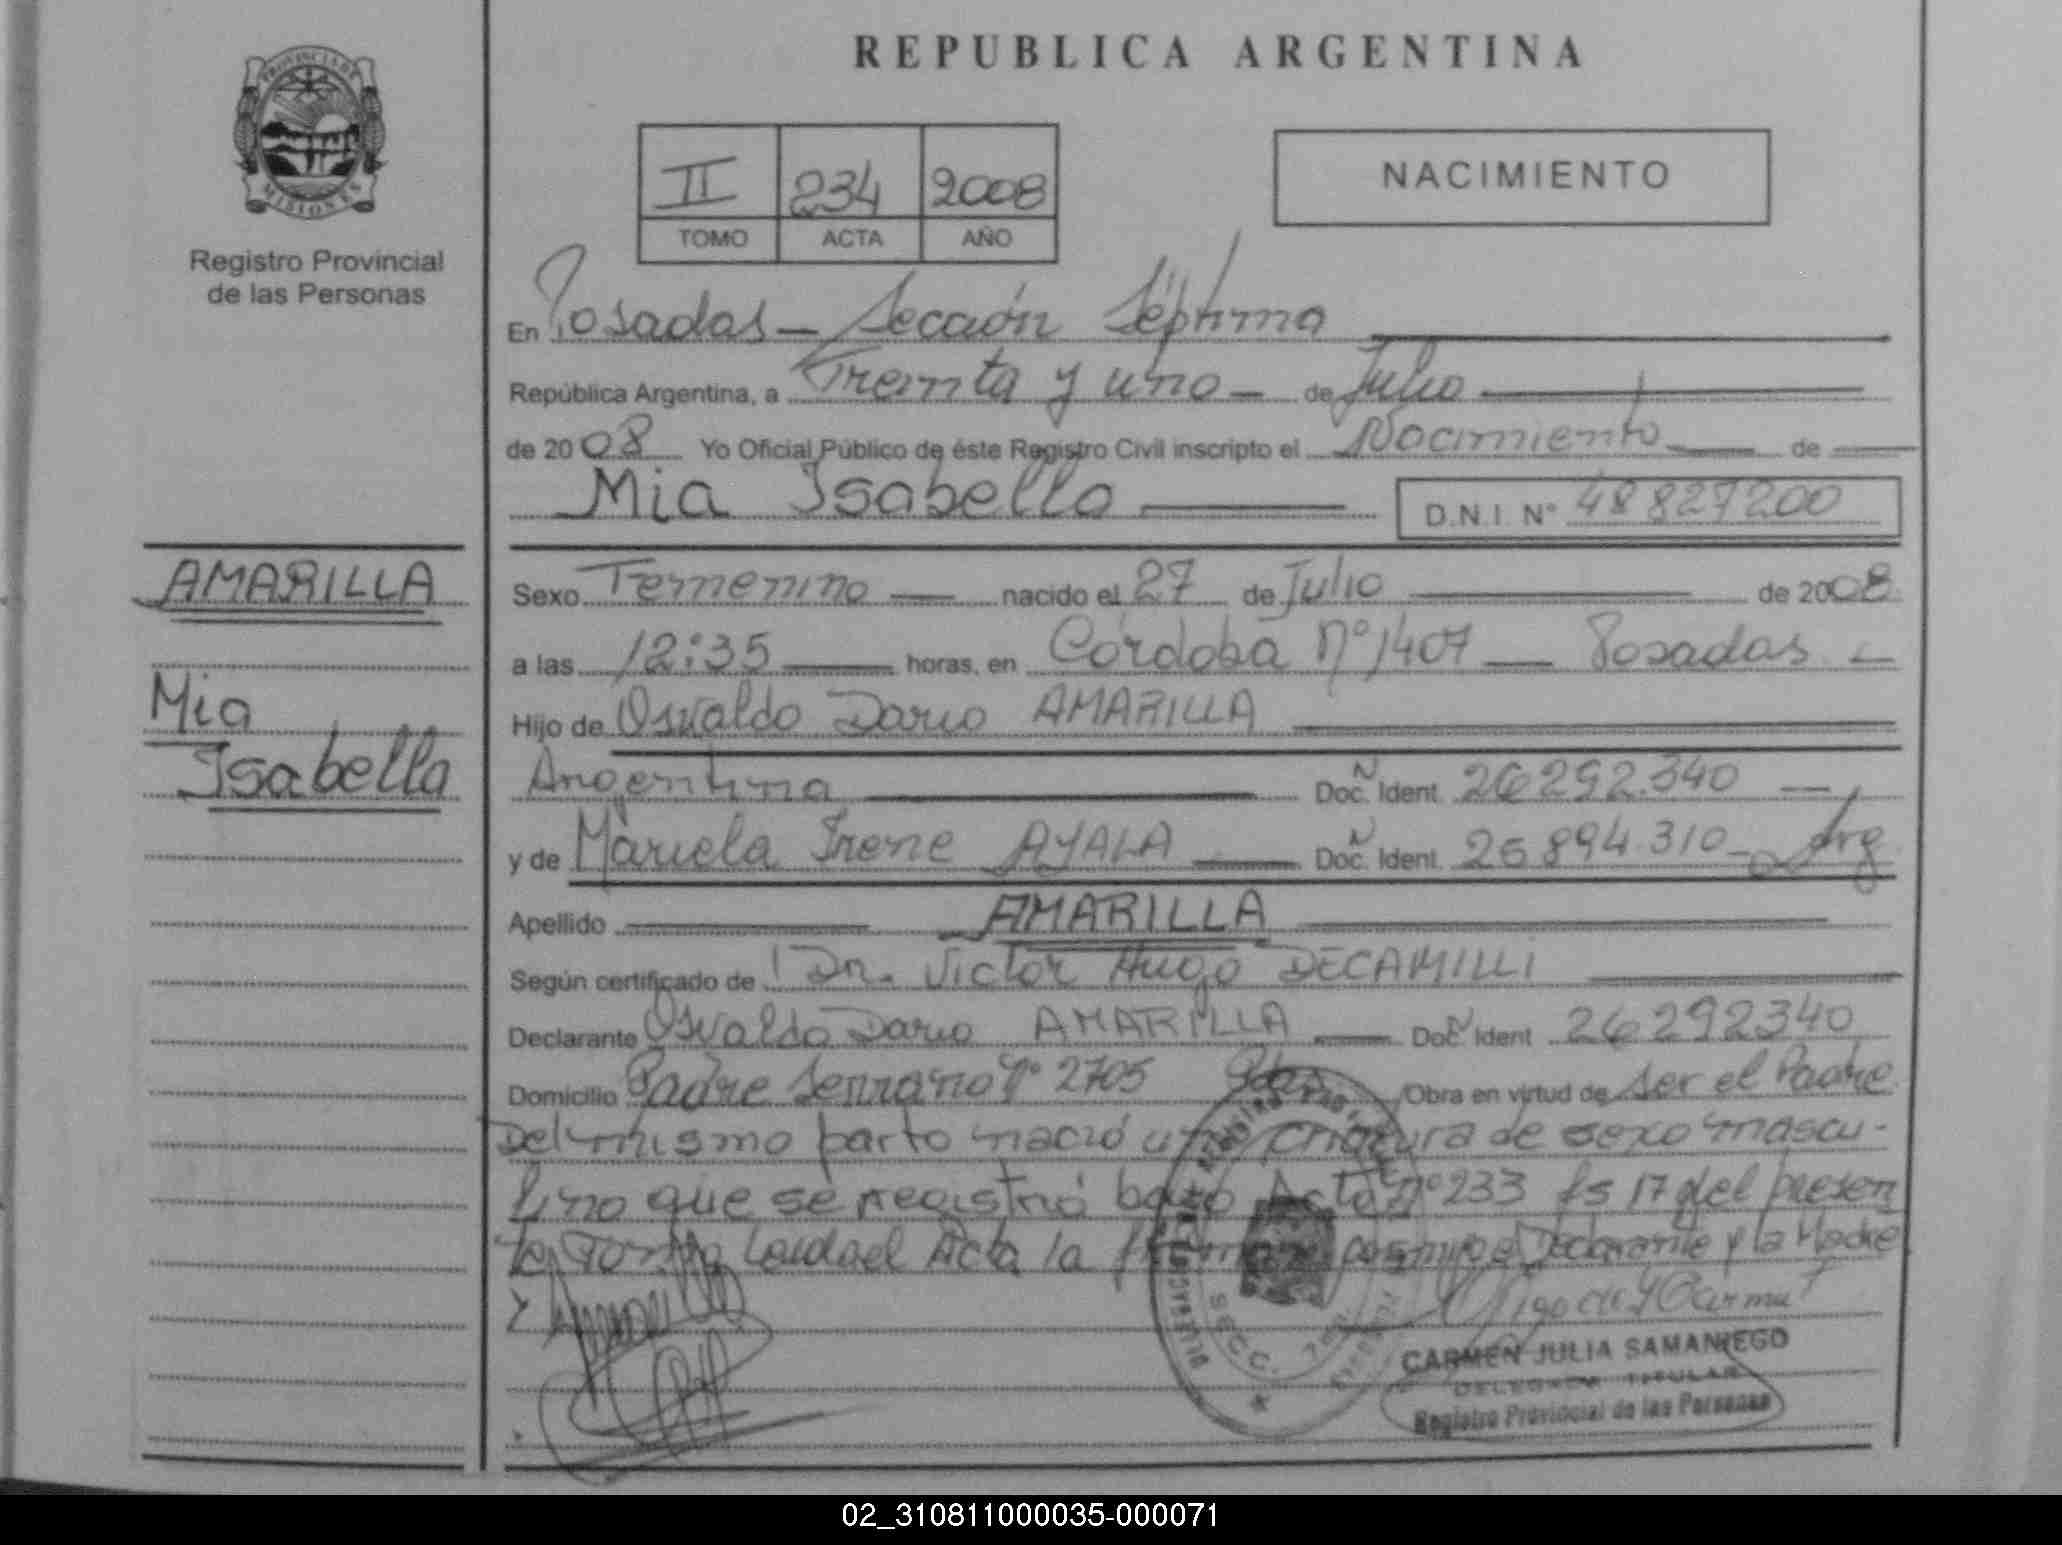 REPUBLICA ARGENTINA
PROVINCIA DE
MISIONES
Registro Provincial
de las Personas
II 234 2008
TOMO ACTA AÑO
NACIMIENTO
En Posadas — Sección Séptima
República Argentina, a Treinta y uno — de Julio
de 2008 Yo Oficial Público de éste Registro Civil inscripto el Nacimiento de
Mia Isabella
D.N.I. Nº 48827200
AMARILLA
Mia
Isabella
Sexo Femenino nacido el 27 de Julio de 2008
a las 12:35 horas, en Córdoba Nº 1407 — Posadas —
Hijo de Osvaldo Dario AMARILLA
Argentina Doc. Ident. 26292.340
y de Mariela Irene AYALA Doc. Ident. 26894.310 — Arg
Apellido AMARILLA
Según certificado de Dr. Victor Hugo DECAMILLI
Declarante Osvaldo Dario AMARILLA Doc. Ident 26292340
Domicilio Padre Serrano Nº 2705 Pdas /Obra en virtud de ser el Padre
Del mismo parto nació una criatura de sexo mascu-
lino que se registró bajo Acta nº 233 fs 17 del presen
te Tomo Leida el Acta la firman conmigo el Declarante y la Madre
SECC. 7
CARMEN JULIA SAMANIEGO
DELEGADA TITULAR
Registro Provincial de las Personas
02_310811000035-000071